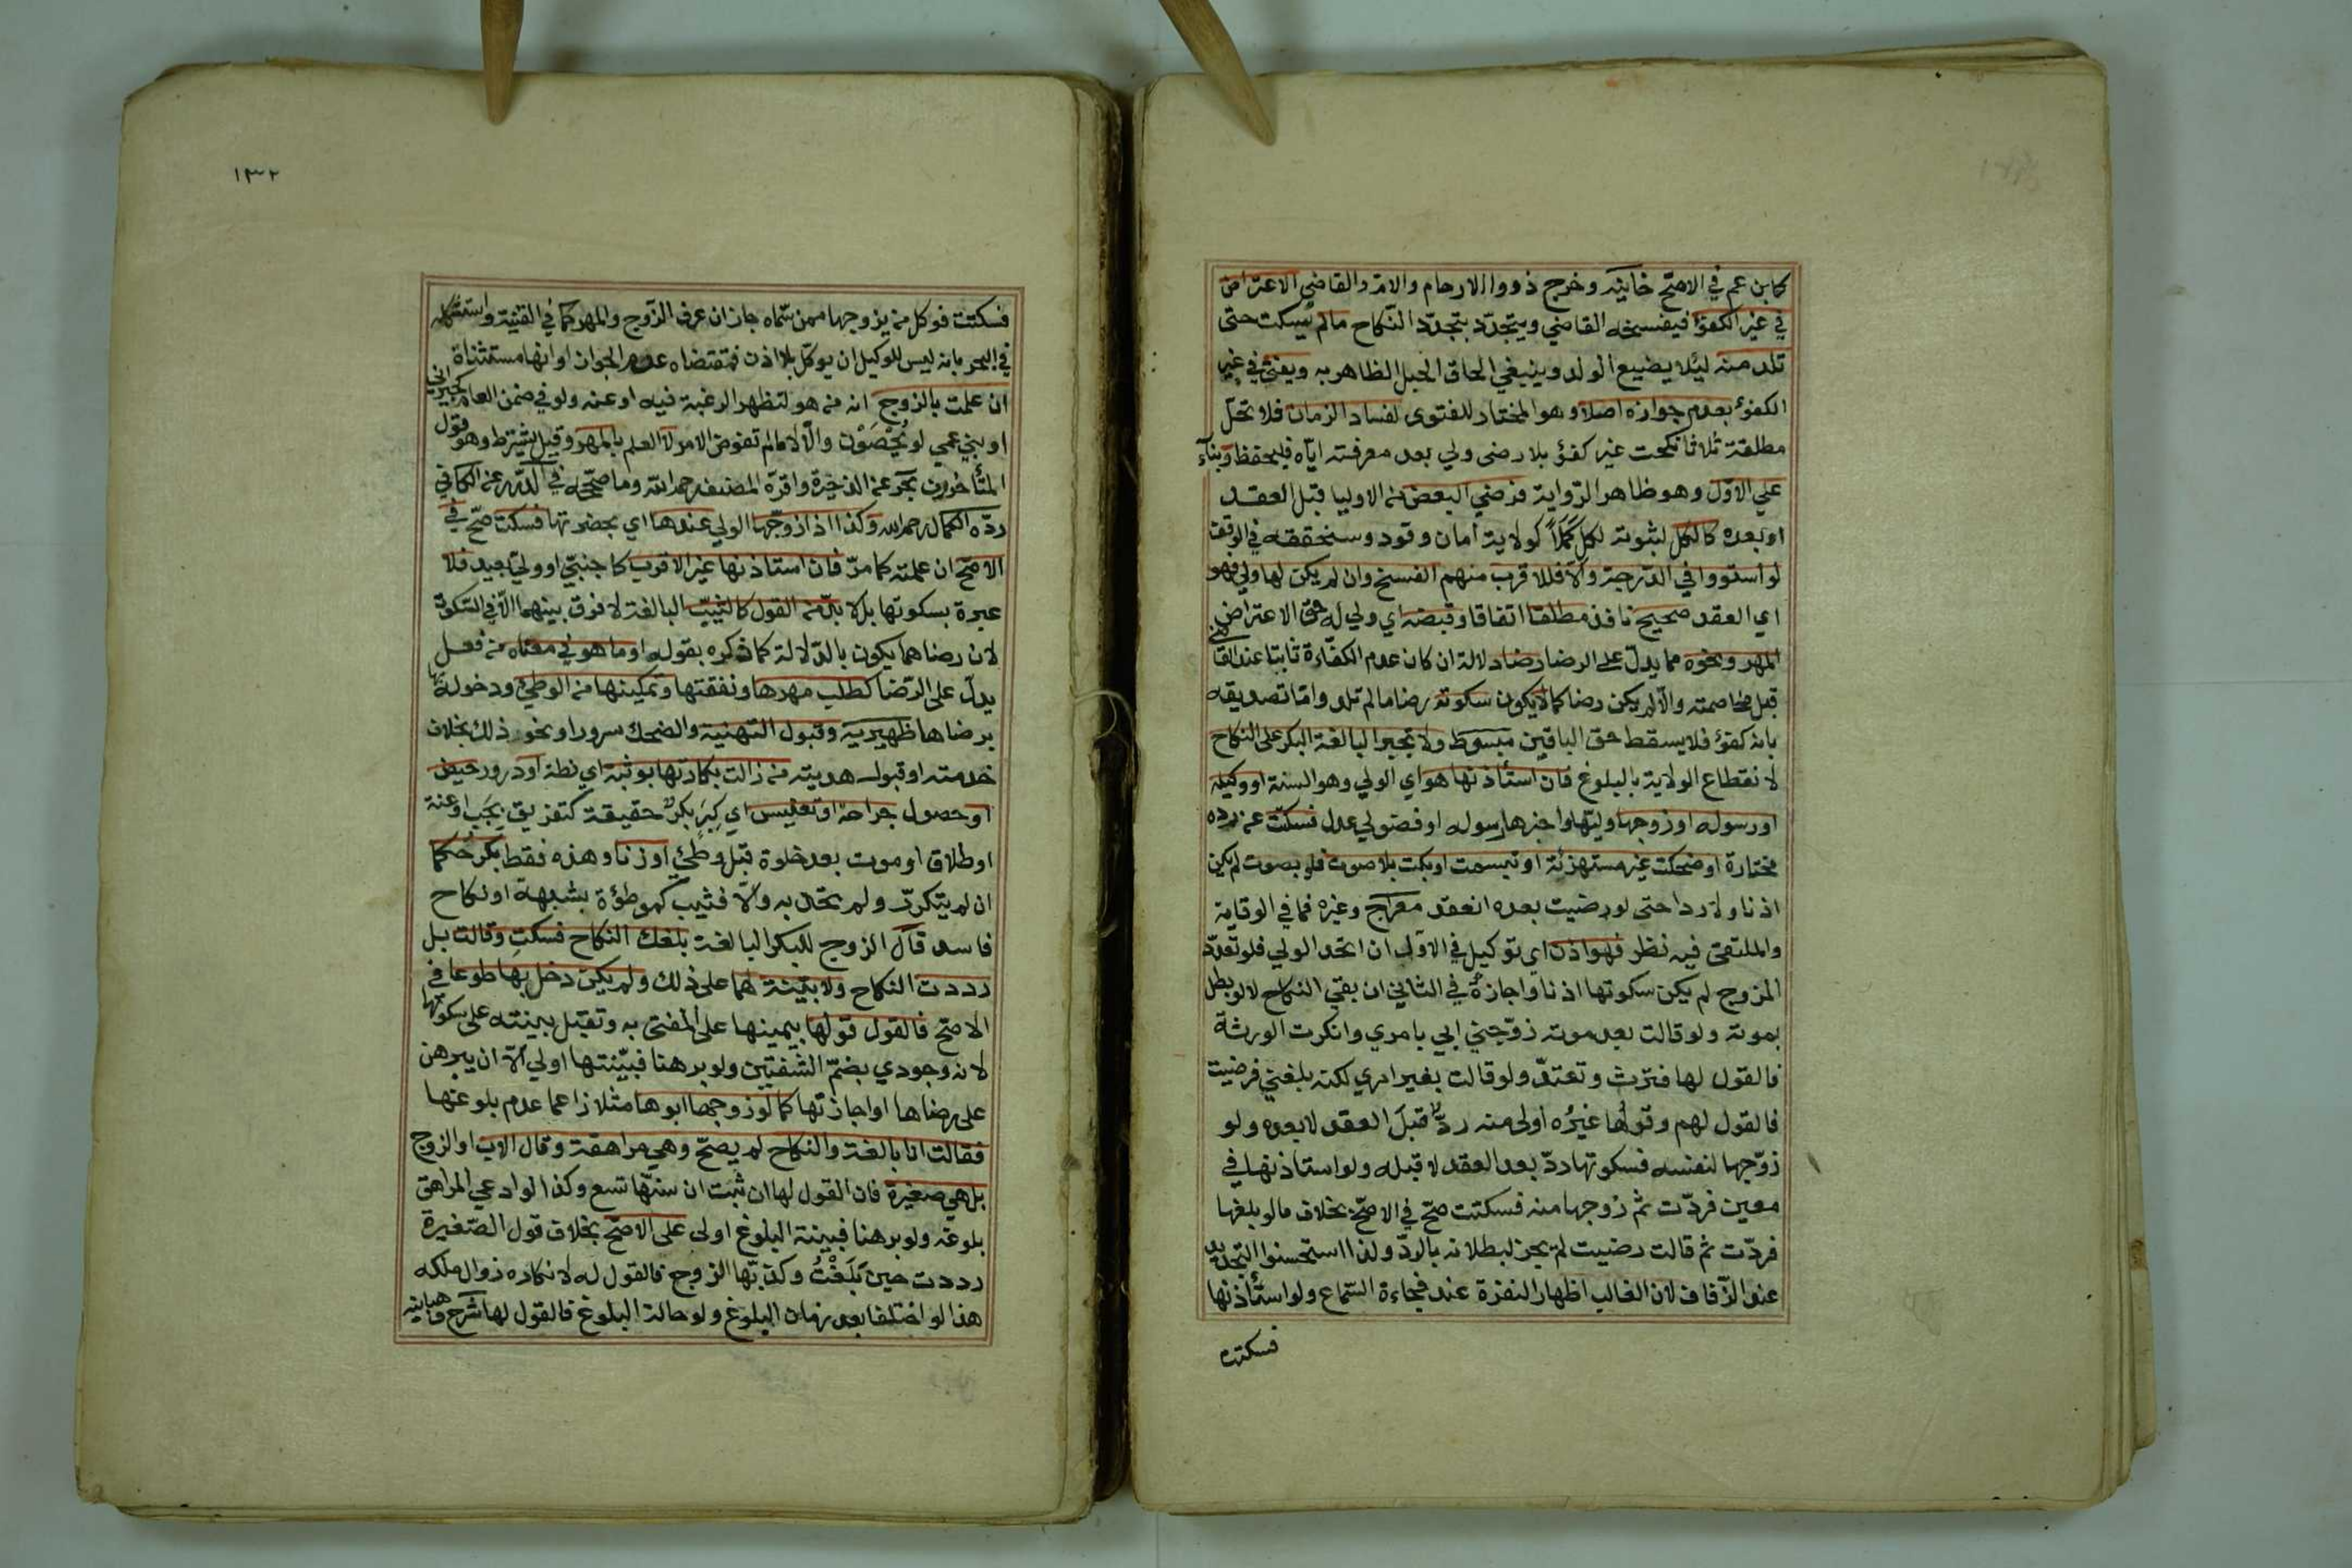 كابن عم في الاصح خانية وخرج ذووا الارحام والام والقاضي الاعتراض
في غير الكفؤ فيفسخه القاضي ويتجدد بتجدد النكاح مالم يسكت حتى
تلد منه ليئلا يضييع الولد وينبغي الحاق الحبل الظاهر به ويفتى في غير
الكفوء بعدم جوازه اصلا وهو المختار للفتوى لفساد الزمان فلا تحل
مطلقة ثلاثا نكحت غير كفؤ بلا رضى ولي بعد معرفته اياه فليحفظ وبناء
على الاول وهو ظاهر الرواية فرضي البعض من الاوليا قبل العقد
او بعده كالكل لثبوته لكل كملا كولاية امان وقود وسنحققه في الوقف
لو استووا في الدرجة والا فللاقرب منهم الفسخ وان لم يكن لها ولي فهو
اي العقد صحيح نافذ مطلقا اتفاقا وقبضه اي ولي له حق الاعتراض
المهر ونحوه مما يدل على الرضا رضا دلالة ان كان عدم الكفاءة ثابتا عند القاضي
قبل مخاصمته والا لم يكن رضا كما لا يكون سكوته رضا ما لم تلد واما تصديقه
بانه كفؤ فلا يسقط حق الباقين مبسوط ولا تجبر البالغة البكر على النكاح
لانقطاع الولاية بالبلوغ فان استأذنها هو اي الولي وهو السنة او وكيله
او رسوله او زوجها وليها واخبرها رسوله او فضولي عدل فسكتت عن رده
مختارة او ضحكت غير مستهزئة او تبسمت او بكت بلا صوت فلو بصوت لم يكن
اذنا ولا ردا حتى لو رضيت بعده انعقد معراج وغيره فما في الوقاية
والملتقى فيه نظر فهو اذن اي توكيل في الاول ان اتحد الولي فلو تعدد
المزوج لم يكن سكوتها اذنا واجازة في الثاني ان بقي النكاح لا لو بطل
بموته ولو قالت بعد موته زوجني ابي بامري وانكرت الورثة
فالقول لها فترث وتعتد ولو قالت بغير امري لكنه بلغني فرضيت
فالقول لهم وقولها غيره اولى منه رد قبل العقد لا بعده ولو
زوجها لنفسه فسكوتها رد بعد العقد لا قبله ولو استاذنها في
معين فردت ثم زوجها منه فسكتت صح في الاصح بخلاف ما لو بلغها
فردت ثم قالت رضيت لم يجز لبطلانه بالرد ولذا استحسنوا التجديد
عند الزفاف لان الغالب اظهار النفرة عند فجاءة السماع ولو استأذنها
فسكتت
١٣٢
فسكتت فوكل من يزوجها ممن سماه جاز ان عرف الزوج والمهر كما في القنية واستشكله
في البحر بانه ليس للوكيل ان يوكل بلا اذن فمقتضاه عدم الجواز او انها مستثناة
ان علمت بالزوج انه من هو لتظهر الرغبة فيه او عنه ولو في ضمن العام كجيراني
او بني عمي لو يحصون والا لا مالم تفوض الامر لا العلم بالمهر وقيل يشترط وهو قول
المتأخرين بحر عن الذخيرة واقره المصنف رحمه الله وما صححه في الدرر عن الكافي
رده الكمال رحمه الله وكذا اذا زوجها الولي عندها اي بحضرتها فسكتت صح في
الاصح ان علمته كما مر فان استاذنها غير الاقرب كاجنبي او ولي بعيد فلا
عبرة بسكوتها بل لا بد من القول كالثيب البالغة لا فرق بينهما الا في السكوت
لان رضاهما يكون بالدلالة كما ذكره بقوله او ما هو في معناه من فعل
يدل على الرضا كطلب مهرها ونفقتها وتمكينها من الوطئ ودخوله بها
برضاها ظهيرية وقبول التهنية والضحك سرورا ونحو ذلك بخلاف
خدمته او قبول هديته من زالت بكارتها بوثبة اي نطة او درور حيض
او حصول جراحة او تعنيس اي كبر بكر حقيقة كتفريق بجب او عنة
او طلاق او موت بعد خلوة قبل وطئ او زنا وهذه فقط بكر حكما
ان لم يتكرر ولم تحد به والا فثيب كموطؤة بشبهة او نكاح
فاسد قال الزوج للبكر البالغة بلغك النكاح فسكت وقالت بل
رددت النكاح ولا بينة لهما على ذلك ولم يكن دخل بها طوعا في
الاصح فالقول قولها بيمينها على المفتى به وتقبل بينته على سكوتها
لانه وجودي بضم الشفتين ولو برهنا فبينتها اولي الا ان يبرهن
على رضاها او اجازتها كما لو زوجها ابوها مثلا زاعما عدم بلوغها
فقالت انا بالغة والنكاح لم يصح وهي مراهقة وقال الاب او الزوج
بل هي صغيرة فان القول لها ان ثبت ان سنها تسع وكذا لو ادعي المراهق
بلوغه ولو برهنا فبينة البلوغ اولى على الاصح بخلاف قول الصغيرة
رددت حين بلغت وكذبها الزوج فالقول له لانكاره زوال ملكه
هذا لو اختلفا بعد زمان البلوغ ولو حالة البلوغ فالقول لها شرح وهبانية